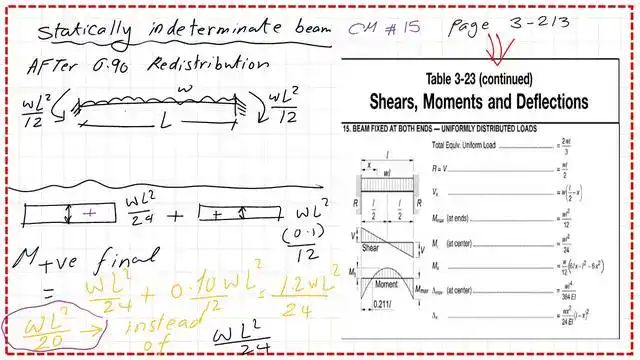 Statically indeterminate beam
CM # 15
Page 3-213
AFTer 0.90 Redistribution
w
wL²/12
wL²/12
L
wL²/24 + wL²(0.1)/12
+
+
M+ve final
= wL²/24 + 0.10wL²/12 = 12wL²/24
wL²/20 → instead
of wL²/24
Table 3-23 (continued)
Shears, Moments and Deflections
15. BEAM FIXED AT BOTH ENDS — UNIFORMLY DISTRIBUTED LOADS
Total Equiv. Uniform Load = 2wl/3
R = V = wl/2
Vx = w(l/2 − x)
Mmax (at ends) = wl²/12
M₁ (at center) = wl²/24
Mx = w/12 (6lx − l² − 6x²)
Δmax (at center) = wl⁴/384EI
Δx = wx²/24EI (l − x)²
l
x
wl
R
R
l/2
l/2
V
Shear
V
M₁
Moment
Mmax
0.211l